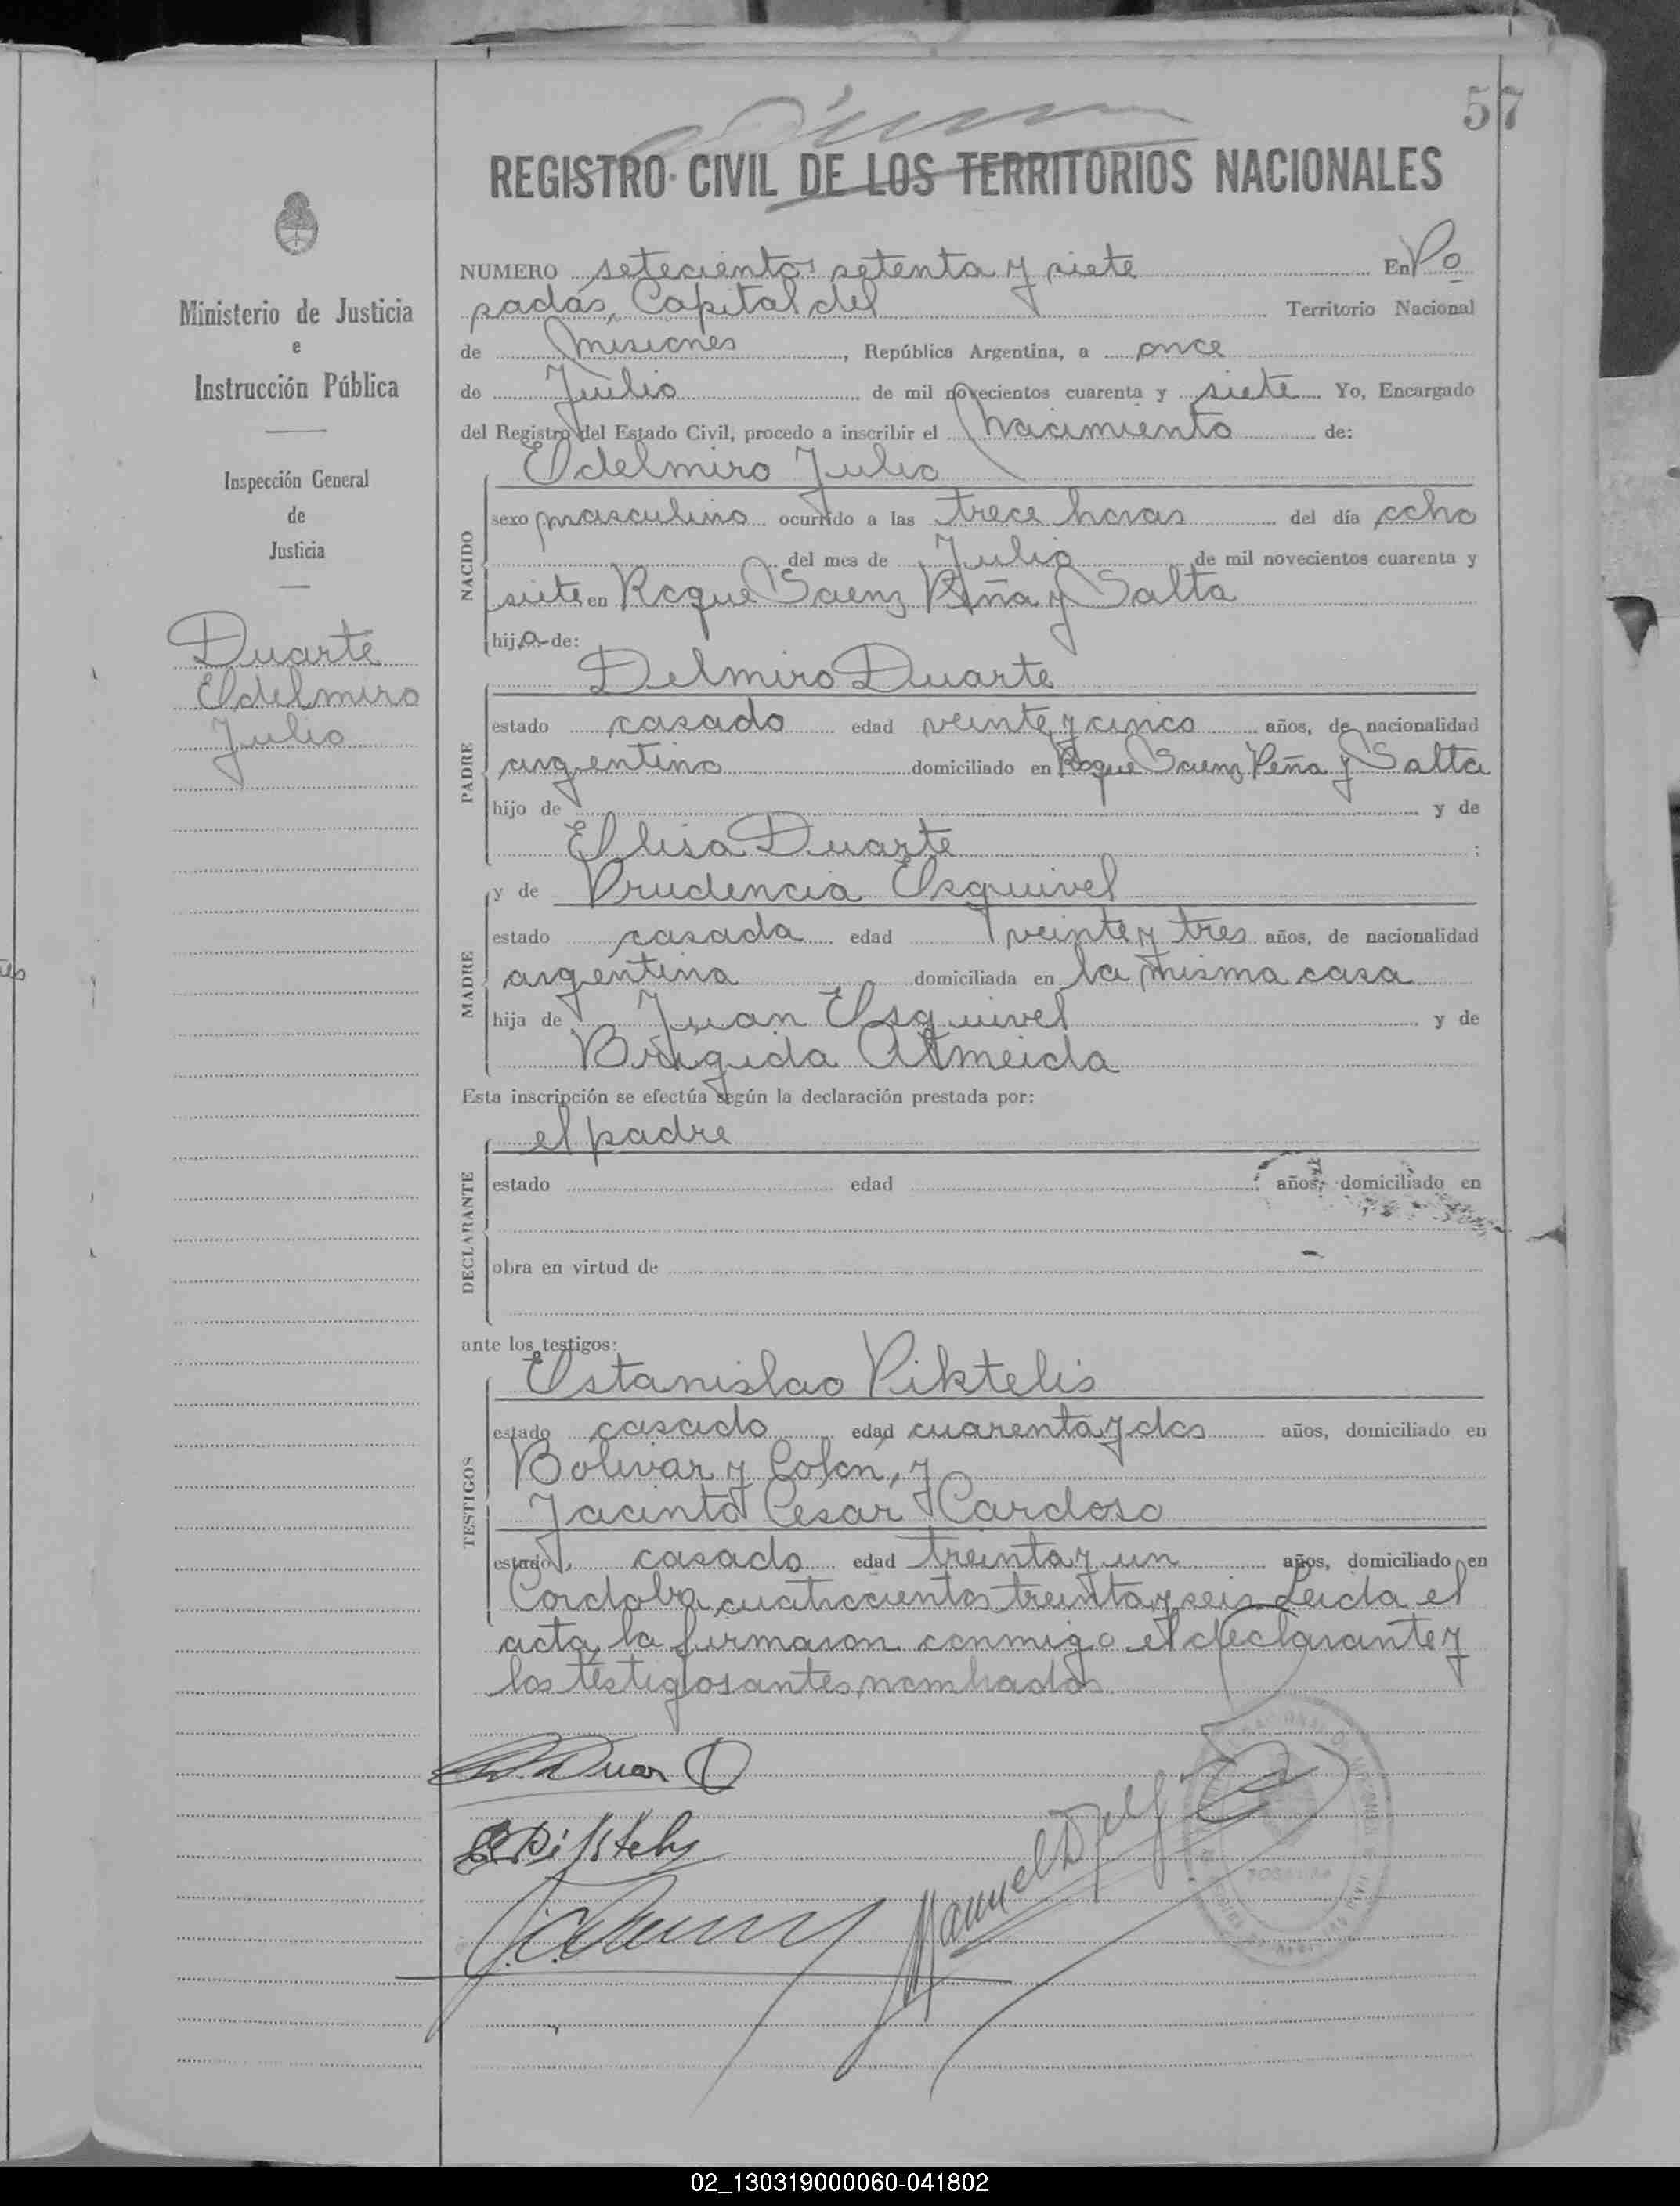 57
REGISTRO CIVIL DE LOS TERRITORIOS NACIONALES
Ministerio de Justicia
e
Instrucción Pública
Inspección General
de
Justicia
Duarte
Eldelmiro
Julio
NUMERO setecientos setenta y siete En Po
sadas, Capital del Territorio Nacional
de Misiones, República Argentina, a once
de Julio de mil novecientos cuarenta y siete Yo, Encargado
del Registro del Estado Civil, procedo a inscribir el Nacimiento de:
Eldelmiro Julio
NACIDO
sexo masculino ocurrido a las trece horas del día ocho
del mes de Julio de mil novecientos cuarenta y
siete en Roque Saenz Peña y Salta
hijo de:
Delmiro Duarte
PADRE
estado casado edad veinte y cinco años, de nacionalidad
argentino domiciliado en Roque Saenz Peña y Salta
hijo de y de
Elisa Duarte ;
y de Prudencia Esquivel
MADRE
estado casada edad veinte y tres años, de nacionalidad
argentina domiciliada en la misma casa
hija de Juan Esquivel y de
Brígida Almeida
Esta inscripción se efectúa según la declaración prestada por:
el padre
DECLARANTE
estado edad años, domiciliado en
obra en virtud de
ante los testigos:
Estanislao Piktelis
TESTIGOS
estado casado edad cuarenta y dos años, domiciliado en
Bolivar y Colon, y
Jacinto Cesar Cardoso
estado casado edad treinta y un años, domiciliado en
Cordoba cuatrocientos treinta y seis. Leida el
acta, la firmaron conmigo el declarante y
los testigos antes nombrados
02_130319000060-041802